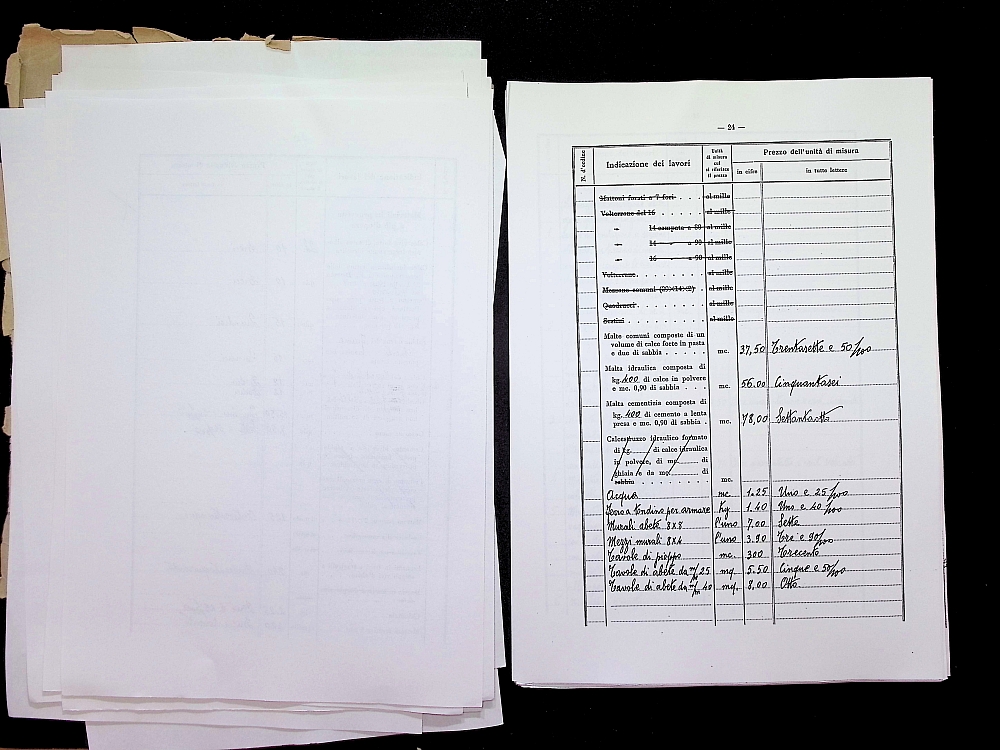 — 24 —
N. d'codice
Indicazione dei lavori
Unità di misura cui si riferisce il prezzo
Prezzo dell'unità di misura
in cifre
in tutte lettere
Mattoni forati a 7 fori . . . . al mille
Volterrane del 16 . . . . . al mille
„ 14 compete a 80 al mille
„ 14 „ a 90 al mille
„ 16 „ a 90 al mille
Volterrane . . . . . . . al mille
Mezzane comuni (29×14×2) . al mille
Quadrucci . . . . . . . al mille
Sestini . . . . . . . . al mille
Malte comuni composte di un
volume di calce forte in pasta
e due di sabbia . . . . . mc. 37,50 Trentasette e 50/100
Malta idraulica composta di
kg. 400 di calce in polvere
e mc. 0,90 di sabbia . . . mc. 56.00 Cinquantasei
Malta cementizia composta di
kg. 400 di cemento a lenta
presa e mc. 0,90 di sabbia . mc. 78,00 Settantotto
Calcestruzzo idraulico formato
di kg. di calce idraulica
in polvere, di mc. di
ghiaia e da mc. di
sabbia . . . . . . . . mc.
Acqua mc. 1.25 Uno e 25/100
Ferro a tondino per armare Kg 1.40 Uno e 40/100
Murali abete 8x8 l'uno 7.00 Sette
Mezzi murali 8x4 l'uno 3.90 Tre e 90/100
Tavole di pioppo mc. 300 Trecento
Tavole di abete da m/m 25 mq. 5.50 Cinque e 50/100
Tavole di abete da m/m 40 mq. 8,00 Otto